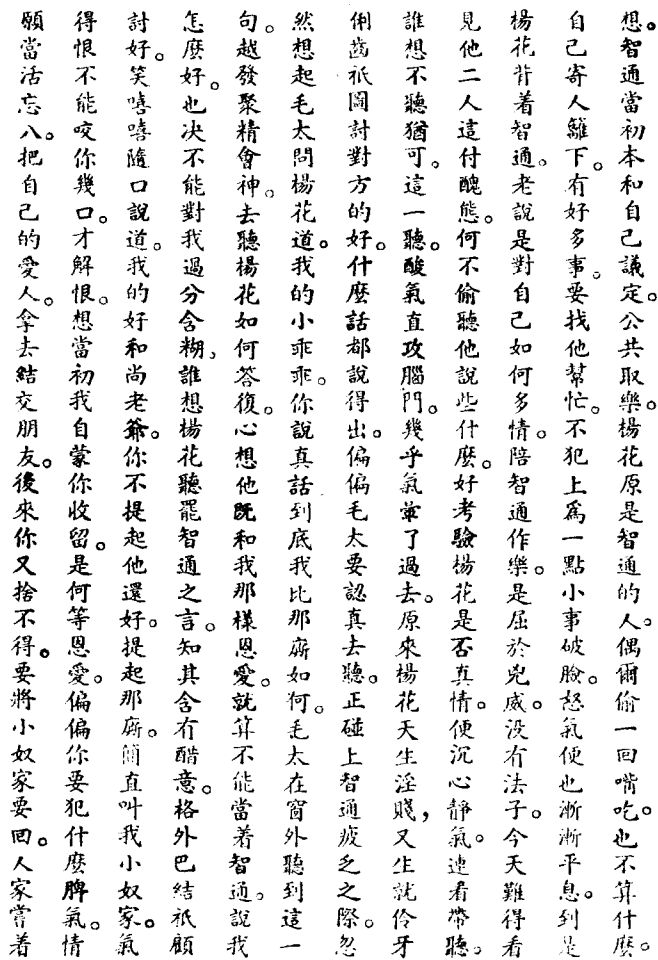 想。智通當初本和自己議定。公共取樂。楊花原是智通的人。偶爾偷一回嘴吃。也不算什麼。
自己寄人籬下。有好多事。要找他幫忙。不犯上爲一點小事破臉。怒氣便也漸漸平息。到是
楊花背着智通。老說是對自己如何多情。陪智通作樂。是屈於兇威。没有法子。今天難得看
見他二人這付醜態。何不偷聽他說些什麼。好考驗楊花是否真情。便沉心靜氣。連看帶聽。
誰想不聽猶可。這一聽。酸氣直攻腦門。幾乎氣暈了過去。原來楊花天生淫賤，又生就伶牙
俐齒祇圖討對方的好。什麼話都說得出。偏偏毛太要認真去聽。正碰上智通疲乏之際。忽
然想起毛太問楊花道。我的小乖乖。你說真話到底我比那廝如何。毛太在窗外聽到這一
句。越發聚精會神。去聽楊花如何答復。心想他既和我那樣恩愛。就算不能當着智通。說我
怎麼好。也决不能對我過分含糊，誰想楊花聽罷智通之言。知其含有醋意。格外巴結祇顧
討好。笑嘻嘻隨口說道。我的好和尚老爺。你不提起他還好。提起那廝。簡直叫我小奴家。氣
得恨不能咬你幾口。才解恨。想當初我自蒙你收留。是何等恩愛。偏偏你要犯什麼脾氣。情
願當活忘八。把自己的愛人。拿去結交朋友。後來你又捨不得。要將小奴家要回。人家嘗着